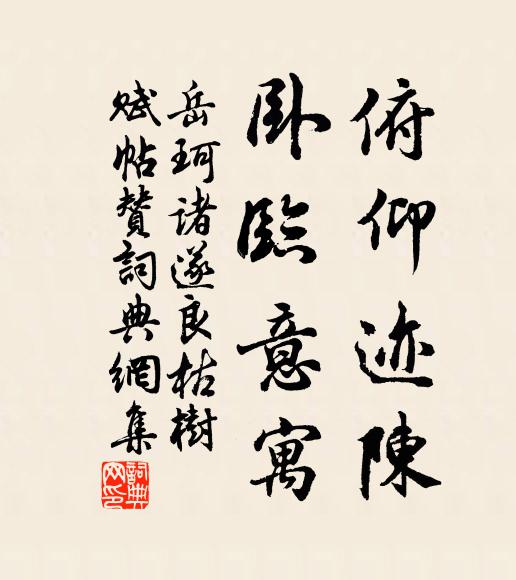 俯仰迹陳
卧臨意寓
岳珂诸遂良枯樹
赋帖賛詞典網集
詞典网印